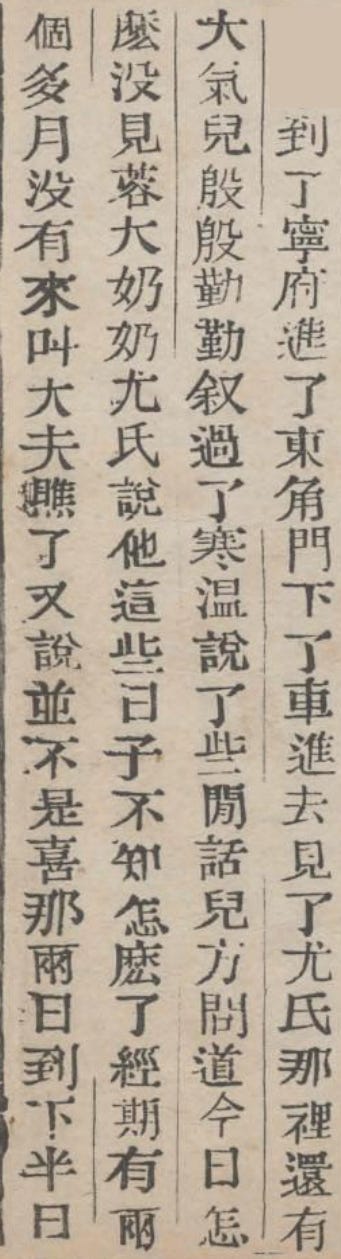 到了寧府進了東角門下了車進去見了尤氏那裡還有
大氣兒殷殷勤勤叙過了寒温說了些閒話兒方問道今日怎
麽没見蓉大奶奶尤氏說他這些日子不知怎麽了經期有兩
個多月没有來叫大夫瞧了又說並不是喜那兩日到下半日